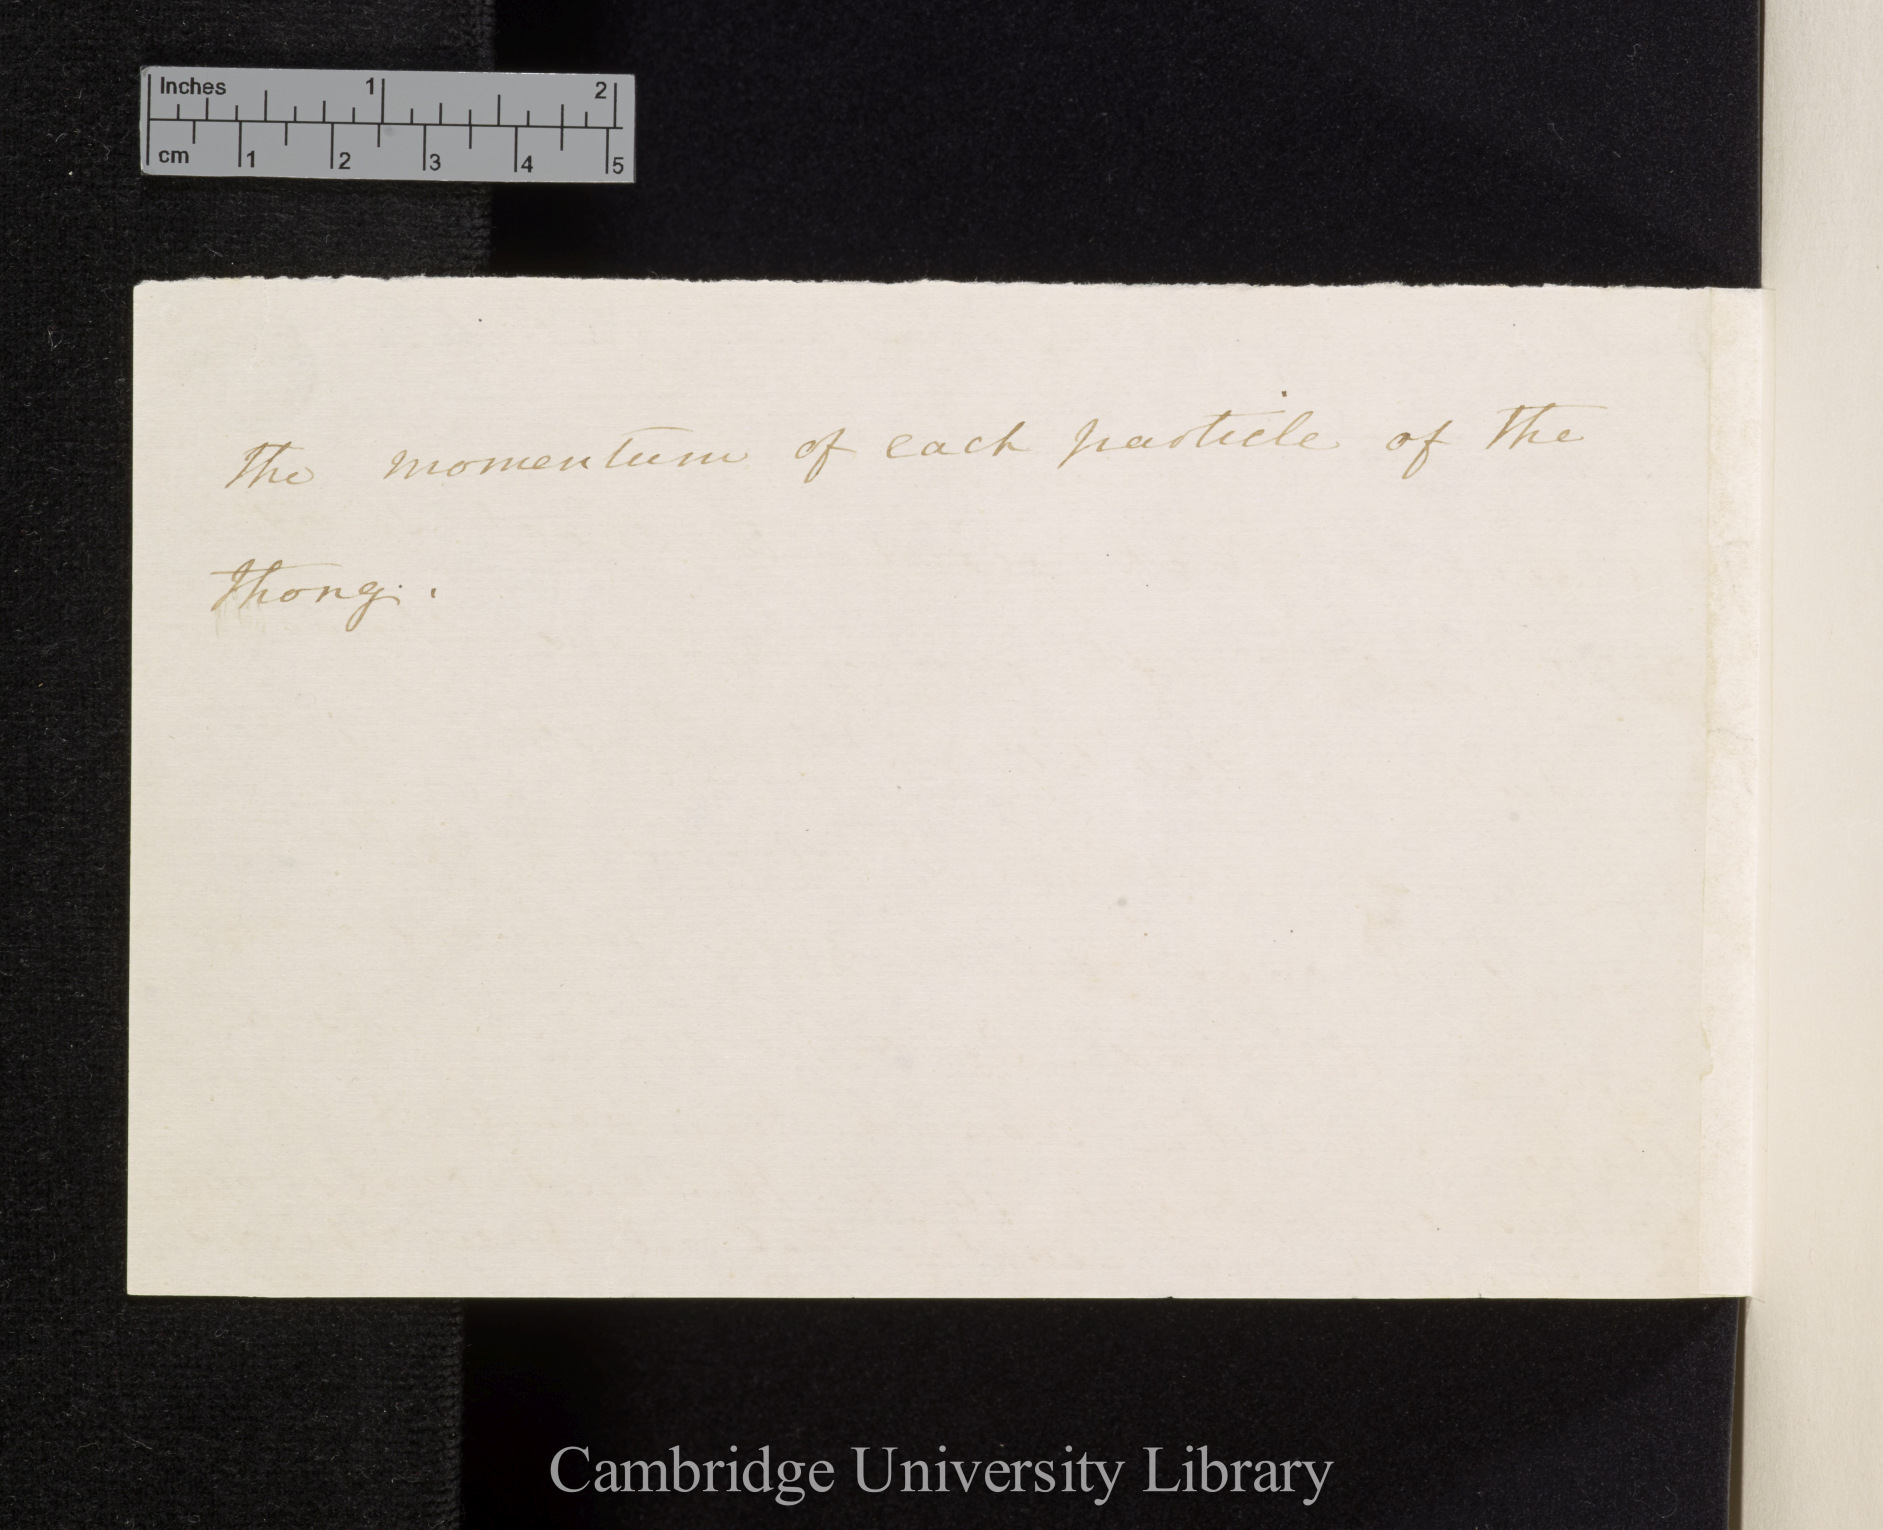 Inches 1 2
cm 1 2 3 4 5
the momentum of each particle of the
thong.
Cambridge University Library